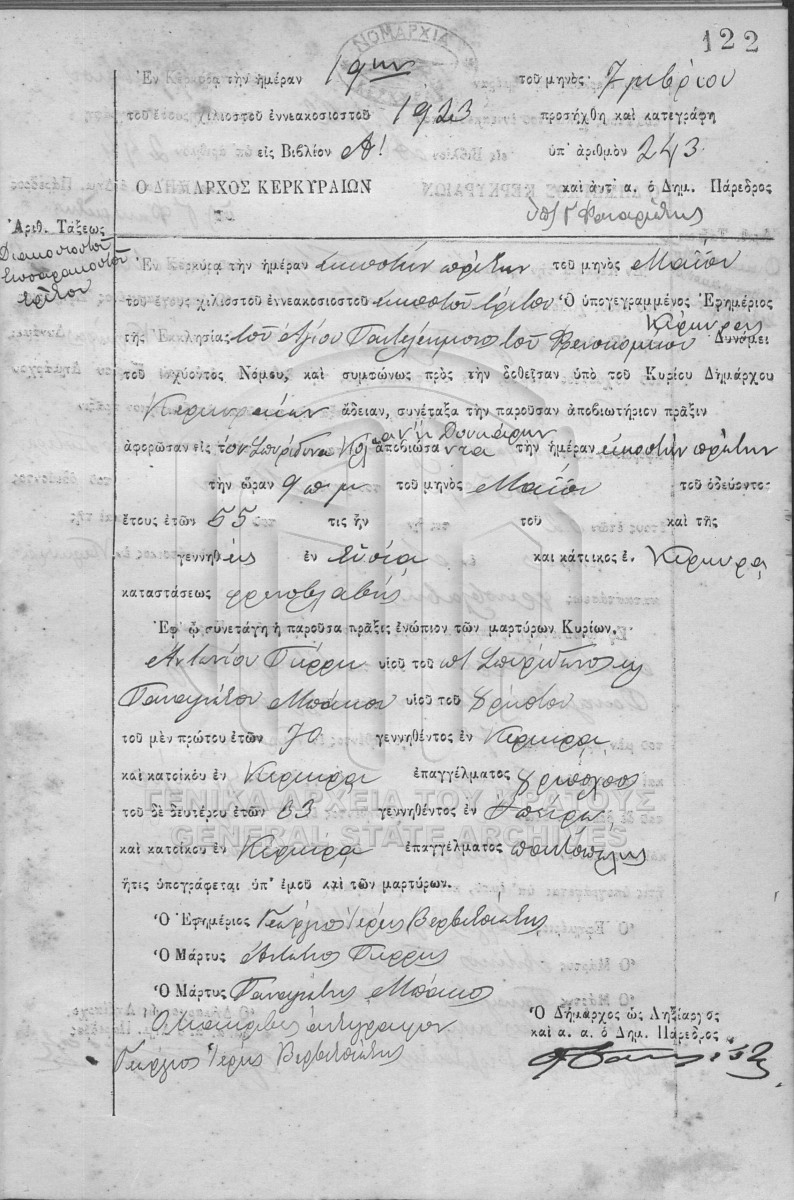 122
ΝΟΜΑΡΧΙΑ
ΚΕΡΚΥΡΑΣ
Ἐν Κέρκυρα τὴν ἡμέραν 19ην τοῦ μηνὸς 7μβρίου
τοῦ ἔτους χιλιοστοῦ ἐννεακοσιοστοῦ 1923 προσήχθη καὶ κατεγράφη
εἰς Βιβλίον Α! ὑπ' ἀριθμὸν 243
Ο ΔΗΜΑΡΧΟΣ ΚΕΡΚΥΡΑΙΩΝ καὶ ἀντ' α. ὁ Δημ. Πάρεδρος
Ἀριθ. Τάξεως
Διακοσιοστὸν
τεσσαρακοστὸν
τρίτον
Ἐν Κέρκυρα τὴν ἡμέραν εἰκοστὴν πρώτην τοῦ μηνὸς Μαΐου
τοῦ ἔτους χιλιοστοῦ ἐννεακοσιοστοῦ εἰκοστοῦ τρίτου Ὁ ὑπογεγραμμένος Ἐφημέριος
τῆς Ἐκκλησίας τοῦ Ἁγίου Παντελεήμονος τοῦ Φρενοκομείου Κερκύρας Δυνάμει
τοῦ ἰσχύοντος Νόμου, καὶ συμφώνως πρὸς τὴν δοθεῖσαν ὑπὸ τοῦ Κυρίου Δημάρχου
Κερκυραίων ἄδειαν, συνέταξα τὴν παροῦσαν ἀποβιωτήριον πρᾶξιν
ἀφορῶσαν εἰς τὸν Σπυρίδωνα ἀποβιώσαντα τὴν ἡμέραν εἰκοστὴν πρώτην
τὴν ὥραν 9 π μ τοῦ μηνὸς Μαΐου τοῦ ὁδεύοντος
ἔτους ἐτῶν 55 τις ἦν τοῦ καὶ τῆς
γεννηθεὶς ἐν καὶ κάτοικος ἐν Κερκύρᾳ
καταστάσεως φρενοβλαβής
Ἐφ' ᾧ συνετάγη ἡ παροῦσα πρᾶξις ἐνώπιον τῶν μαρτύρων Κυρίων.
Ἀντωνίου Γκέρμη υἱοῦ τοῦ Σπυρίδωνος
Παναγιώτου Μπάκου υἱοῦ τοῦ Χρήστου
τοῦ μὲν πρώτου ἐτῶν 70 γεννηθέντος ἐν Κερκύρᾳ
καὶ κατοίκου ἐν Κερκύρᾳ ἐπαγγέλματος
τοῦ δὲ δευτέρου ἐτῶν 63 γεννηθέντος ἐν Ἠπείρῳ
καὶ κατοίκου ἐν Κερκύρᾳ ἐπαγγέλματος παντοπώλης
ἥτις ὑπογράφεται ὑπ' ἐμοῦ καὶ τῶν μαρτύρων.
Ὁ Ἐφημέριος Γεώργιος Ἱερεὺς Βερβιτσιώτης
Ὁ Μάρτυς Ἀντώνιος
Ὁ Μάρτυς Παναγιώτης Μπάκος
Ὁ Δήμαρχος ὡς Ληξίαρχος
καὶ α. α. ὁ Δημ. Πάρεδρος
Γεώργιος Ἱερεὺς Βερβιτσιώτης
ΓΕΝΙΚΑ ΑΡΧΕΙΑ ΤΟΥ ΚΡΑΤΟΥΣ
GENERAL STATE ARCHIVES